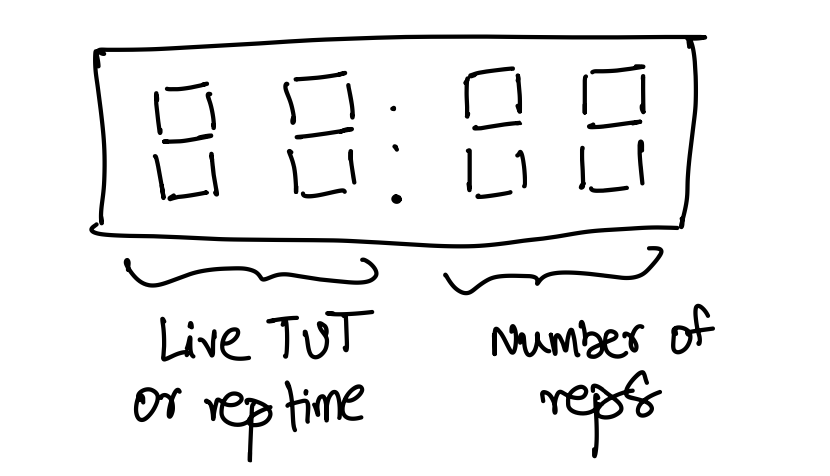 88:88
Live TUT
or rep time
Number of
reps